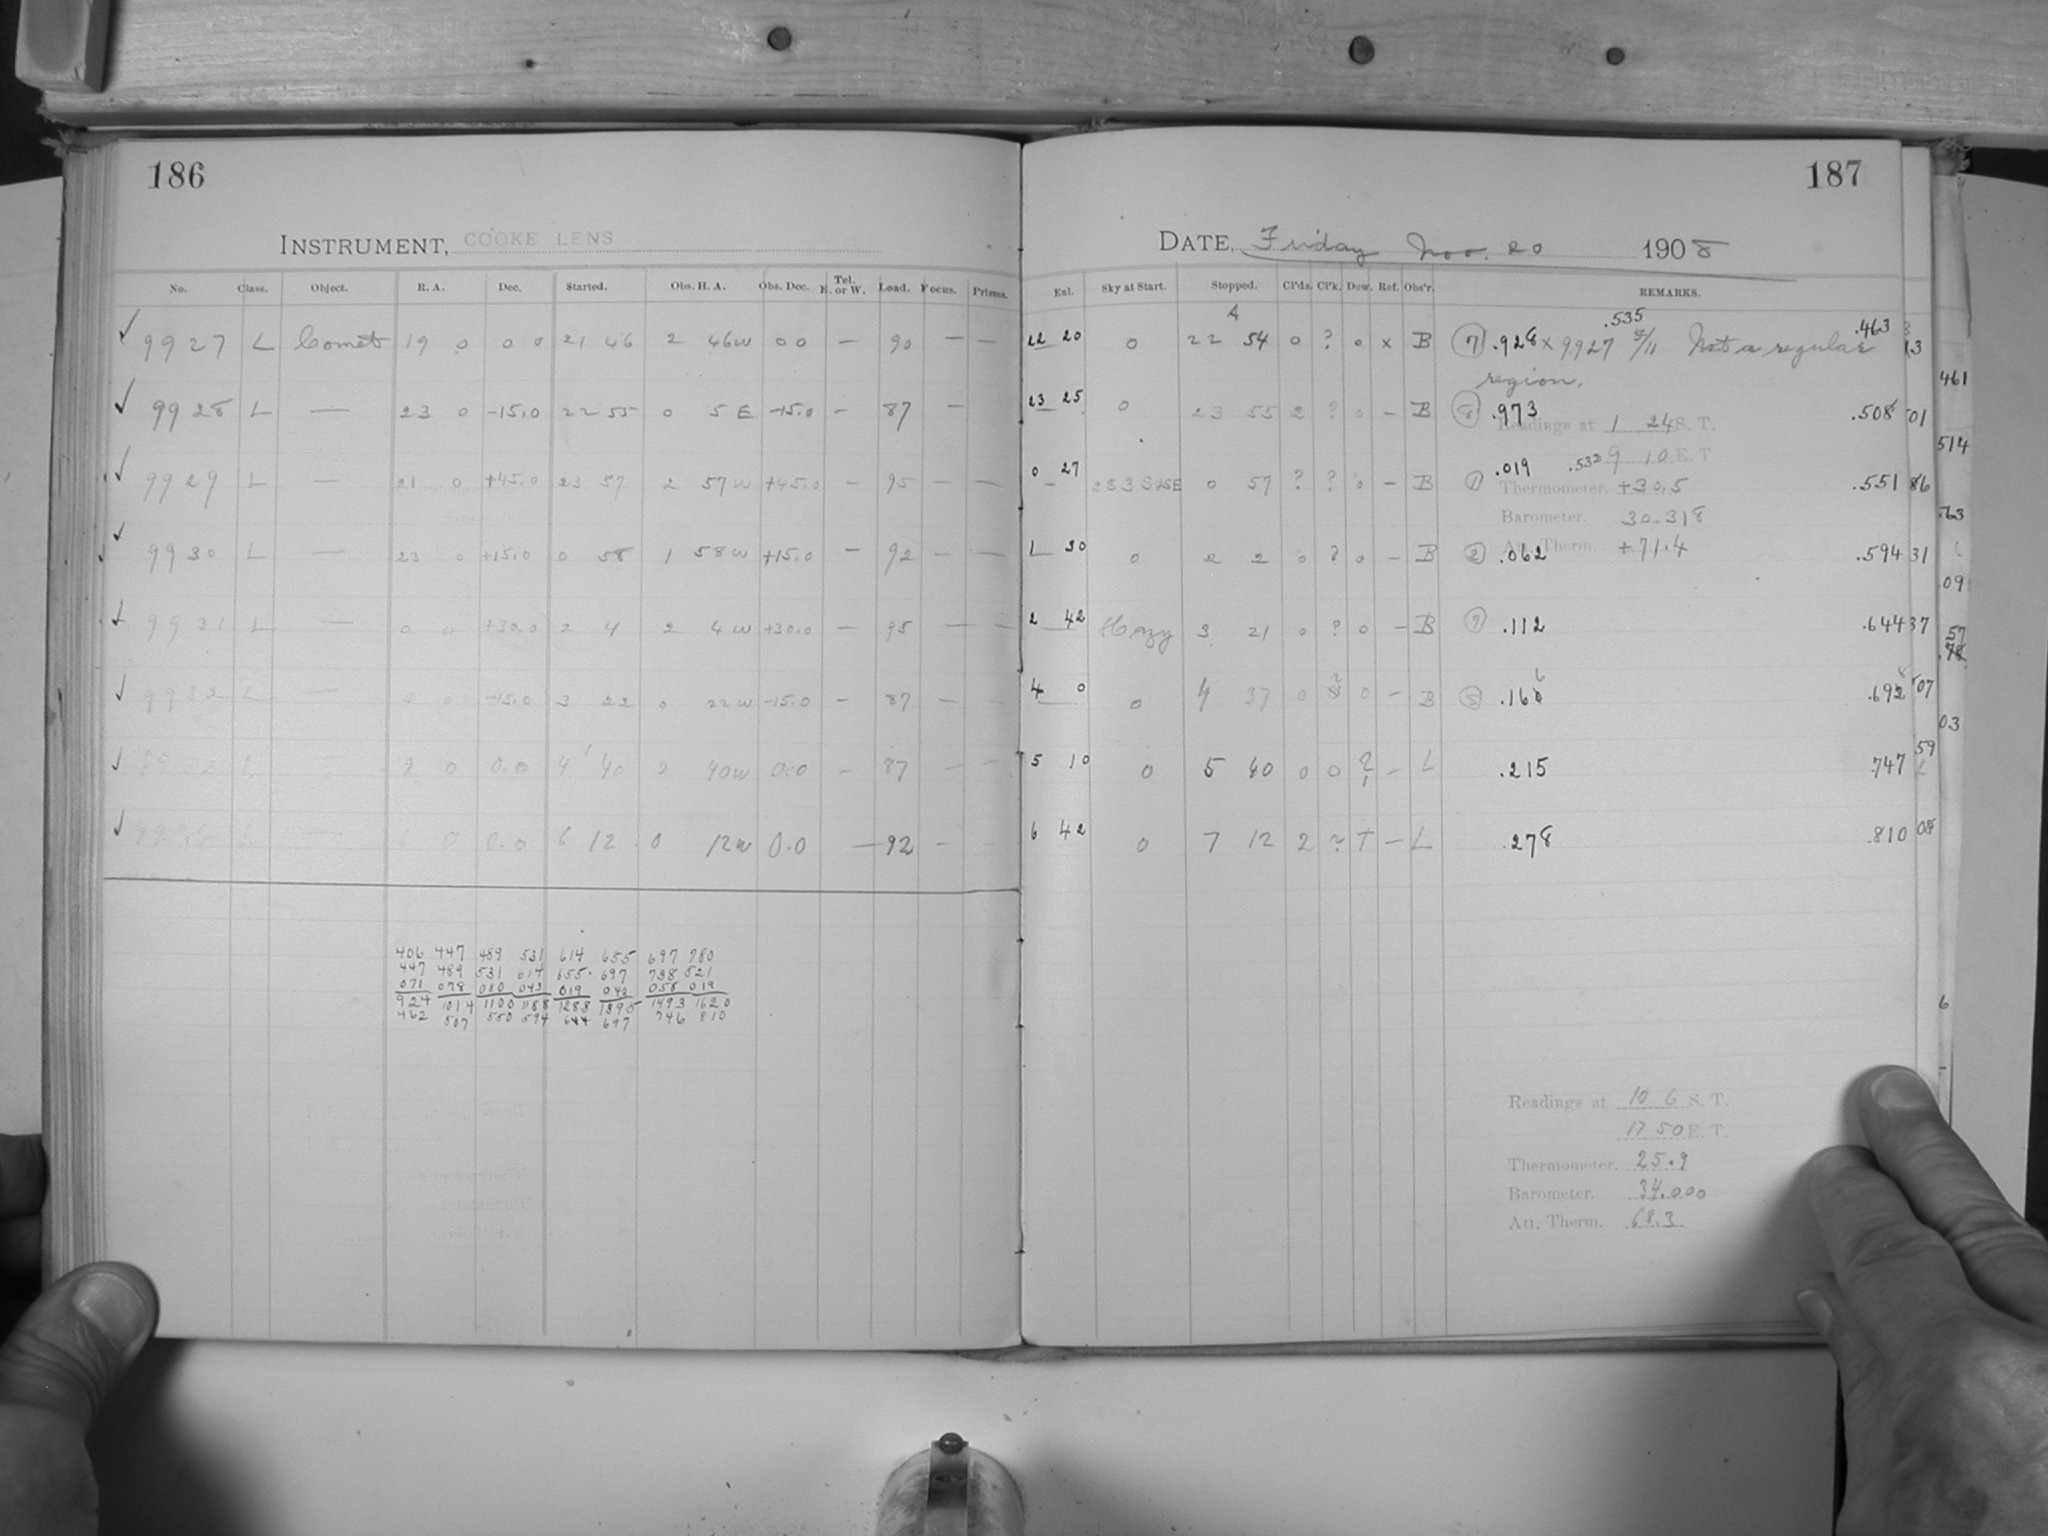 186
187
INSTRUMENT, COOKE LENS
DATE, Friday Nov. 20 1908
No. Class. Object. R. A. Dec. Started. Obs. H. A. Obs. Dec. Tel. E. or W. Load. Focus. Prisms.
Ent. Sky at Start. Stopped. Cl'ds. Cl'k. Dew. Ref. Obs'r. REMARKS.
✓ 9927 L Comet 19 0 0 0 21 46 2 46w 0 0 — 90 — — 22 20 0 22 54 0 ? 0 x B ⑦ .928 x 9927 .535 8/11 Not a regular .463
region.
✓ 9928 L — 23 0 -15.0 22 55 0 5 E -15.0 - 87 — 23 25 0 23 55 2 ? 0 - B ⑧ .973 .508
Readings at 1 24 S. T.
9 10 E. T.
✓ 9929 L — 21 0 +45.0 23 57 2 57w +45.0 - 95 — — 0 27 0 57 ? ? 0 - B ① .019 .532 .551
Thermometer. +30.5
Barometer. 30.318
Att. Therm. +71.4
✓ 9930 L — 23 0 +15.0 0 58 1 58w +15.0 — 92 — — 1 30 0 2 2 0 ? 0 - B ② .062 .594
✓ 9931 L — 0 0 +30.0 2 4 2 4w +30.0 — 95 — — 2 42 Hazy 3 21 0 ? 0 - B ⑦ .112 .644
✓ 9932 L — 3 0 -15.0 3 22 0 22w -15.0 — 87 — — 4 0 0 4 37 0 ? 0 - B .166 .692
✓ L — 2 0 0.0 4 40 2 40w 0.0 — 87 — — 5 10 0 5 40 0 0 - L .215 .747
✓ — 6 0 0.0 6 12 0 12w 0.0 — 92 — 6 42 0 7 12 2 ? T - L .278 .810
406 447 489 531 614 655 697 780
447 489 531 614 655 697 738 821
071 078 080 043 019 042 058 019
924 1014 1100 1188 1288 1395 1493 1620
462 507 550 594 644 697 746 810
Readings at 10 6 S. T.
17 50 E. T.
Thermometer. 25.9
Barometer. 34.000
Att. Therm. 68.3
461
514
.63
.09
57
03
59
08
6